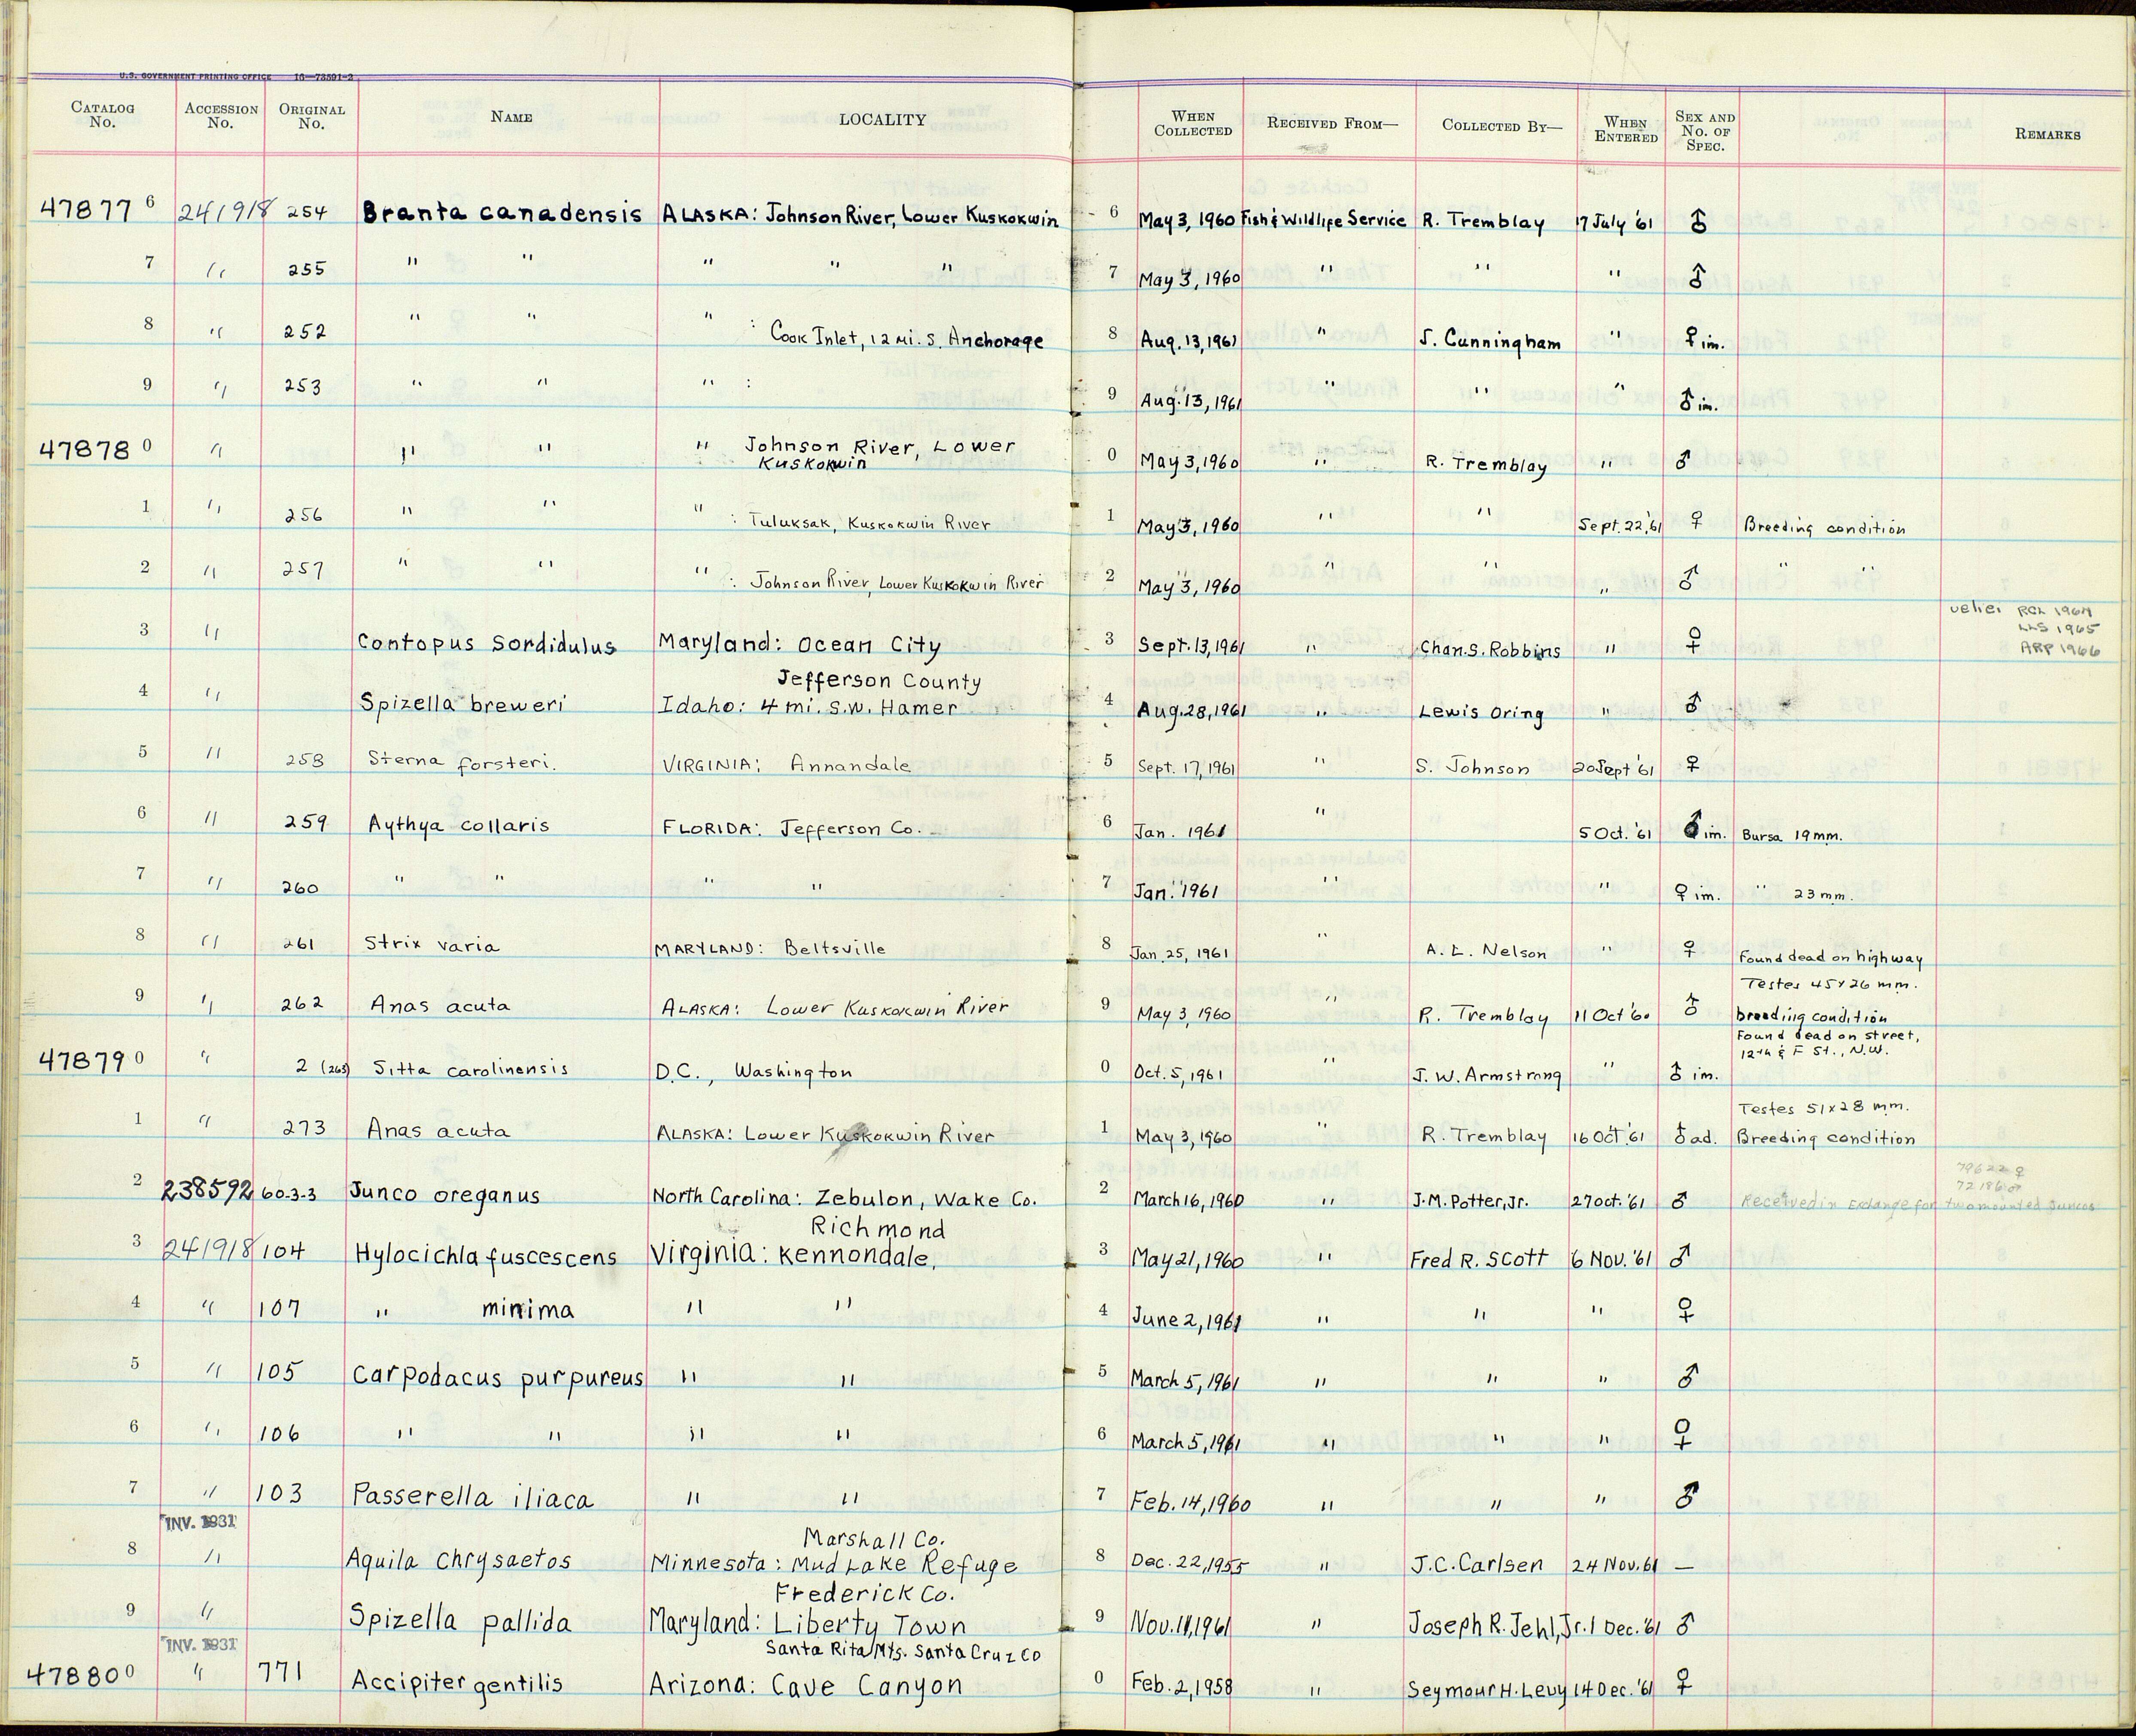 U.S. GOVERNMENT PRINTING OFFICE 16—73591-2
CATALOG No. ACCESSION No. ORIGINAL No. NAME LOCALITY WHEN COLLECTED RECEIVED FROM— COLLECTED BY— WHEN ENTERED SEX AND No. OF SPEC. REMARKS
47877 6 241918 254 Branta canadensis ALASKA: Johnson River, Lower Kuskokwin 6 May 3, 1960 Fish & Wildlife Service R. Tremblay 17 July '61 ♂
7 " 255 " " " " " 7 May 3, 1960 " " " ♂
8 " 252 " " " : Cook Inlet, 12 mi. S. Anchorage 8 Aug. 13, 1961 " J. Cunningham " ♀ im.
9 " 253 " " " : 9 Aug. 13, 1961 " " " ♂ im.
47878 0 " " " " Johnson River, Lower
Kuskokwin 0 May 3, 1960 " R. Tremblay " ♂
1 " 256 " " " : Tuluksak, Kuskokwin River 1 May 3, 1960 " " Sept. 22, '61 ♀ Breeding condition
2 " 257 " " " : Johnson River, Lower Kuskokwin River 2 May 3, 1960 " " " ♂ " "
RCL 1964
LLS 1965
3 " Contopus sordidulus Maryland: Ocean City 3 Sept. 13, 1961 " Chan. S. Robbins " ♀ ARP 1966
Jefferson County
4 " Spizella breweri Idaho: 4 mi. S.W. Hamer 4 Aug. 28, 1961 " Lewis Oring " ♂
5 " 258 Sterna forsteri. VIRGINIA: Annandale 5 Sept. 17, 1961 " S. Johnson 20 Sept '61 ♀
6 " 259 Aythya collaris FLORIDA: Jefferson Co. 6 Jan. 1961 " 5 Oct. '61 ♂ im. Bursa 19 mm.
7 " 260 " " " " 7 Jan. 1961 " " ♀ im. " 23 mm.
8 " 261 Strix varia MARYLAND: Beltsville 8 Jan. 25, 1961 " A. L. Nelson " ♀ Found dead on highway
Testes 45x26 mm.
9 " 262 Anas acuta ALASKA: Lower Kuskokwin River 9 May 3, 1960 " R. Tremblay 11 Oct '60 ♂ breeding condition
Found dead on street,
12th & F St., N.W.
47879 0 " 2 (263) Sitta carolinensis D.C., Washington 0 Oct. 5, 1961 " J. W. Armstrong " ♂ im.
Testes 51x28 mm.
1 " 273 Anas acuta ALASKA: Lower Kuskokwin River 1 May 3, 1960 " R. Tremblay 16 Oct. '61 ♂ ad. Breeding condition
79622 ♀
72186 ♂
2 238592 60-3-3 Junco oreganus North Carolina: Zebulon, Wake Co. 2 March 16, 1960 " J. M. Potter, Jr. 27 Oct. '61 ♂ Received in Exchange for two mounted Juncos
Richmond
3 241918 104 Hylocichla fuscescens Virginia: Kennondale, 3 May 21, 1960 " Fred R. Scott 6 Nov. '61 ♂
4 " 107 " minima " " 4 June 2, 1961 " " " ♀
5 " 105 Carpodacus purpureus " " 5 March 5, 1961 " " " ♂
6 " 106 " " " " 6 March 5, 1961 " " " ♀
7 " 103 Passerella iliaca " " 7 Feb. 14, 1960 " " " ♂
INV. 1931
Marshall Co.
8 " Aquila chrysaetos Minnesota: Mud Lake Refuge 8 Dec. 22, 1955 " J. C. Carlsen 24 Nov. 61 —
Frederick Co.
9 " Spizella pallida Maryland: Liberty Town 9 Nov. 11, 1961 " Joseph R. Jehl, Jr. 1 Dec. '61 ♂
INV. 1931
Santa Rita Mts. Santa Cruz Co
47880 0 " 771 Accipiter gentilis Arizona: Cave Canyon 0 Feb. 2, 1958 " Seymour H. Levy 14 Dec. '61 ♀